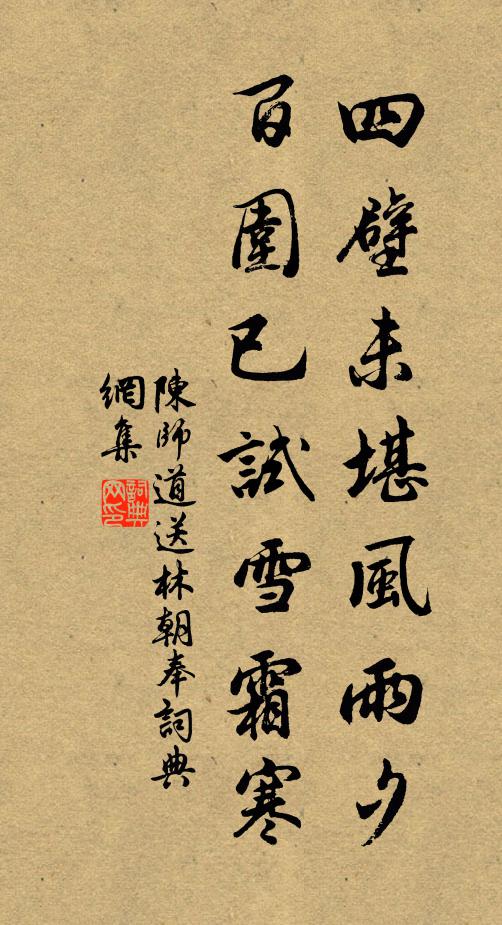 四壁未堪風雨夕
百圍已試雪霜寒
陳師道送林朝奉詞典
網集
詞典网印